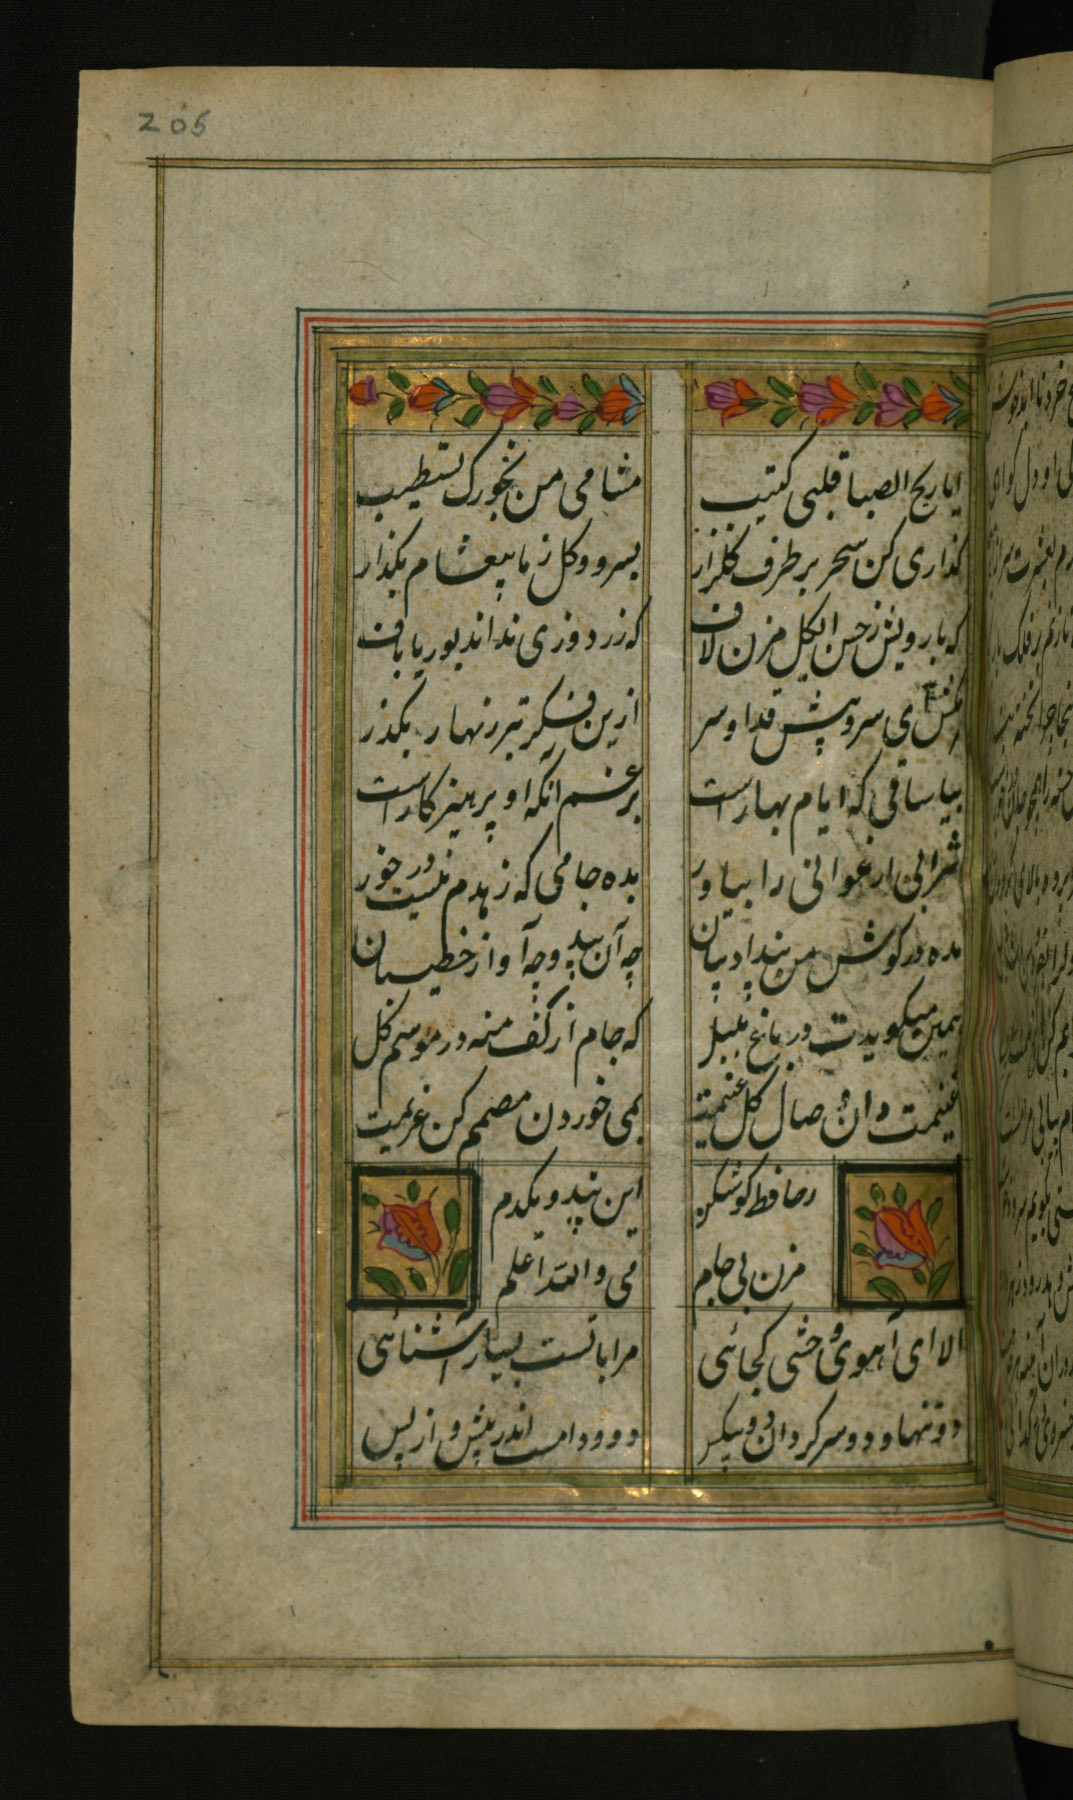 205
ایا ریح الصبا قلبی کئیب مشامی من بخورک یستطیب
گذاری کن سحر بر طرف گلزار بسرو و گل ز ما پیغام بگذار
که با رویش ز حسن ای گل مزن لاف که زردوزی نداند بوریاباف
مکش ای سرو پیش قد او سر ازین فکر تبر زنهار بگذر
بیا ساقی که ایام بهار است برغم آنکه او پرهیزکار است
شرابی ارغوانی را بیاور بده جامی که زهدم نیست در خور
مده در گوش من پند ادیبان چه آن پند و چه آواز خطیبان
همین میگویدت در باغ بلبل که جام از کف منه در موسم گل
غنیمت دان وصال گل غنیمت بمی خوردن مصمم کن عزیمت
ز حافظ گوشکن این پند و یکدم
مزن بی جام می والله اعلم
الا ای آهوی وحشی کجائی مرا با تست بسیار آشنائی
دو تنها و دو سرگردان دو بیکس دو و دامست اندر پیش و از پس